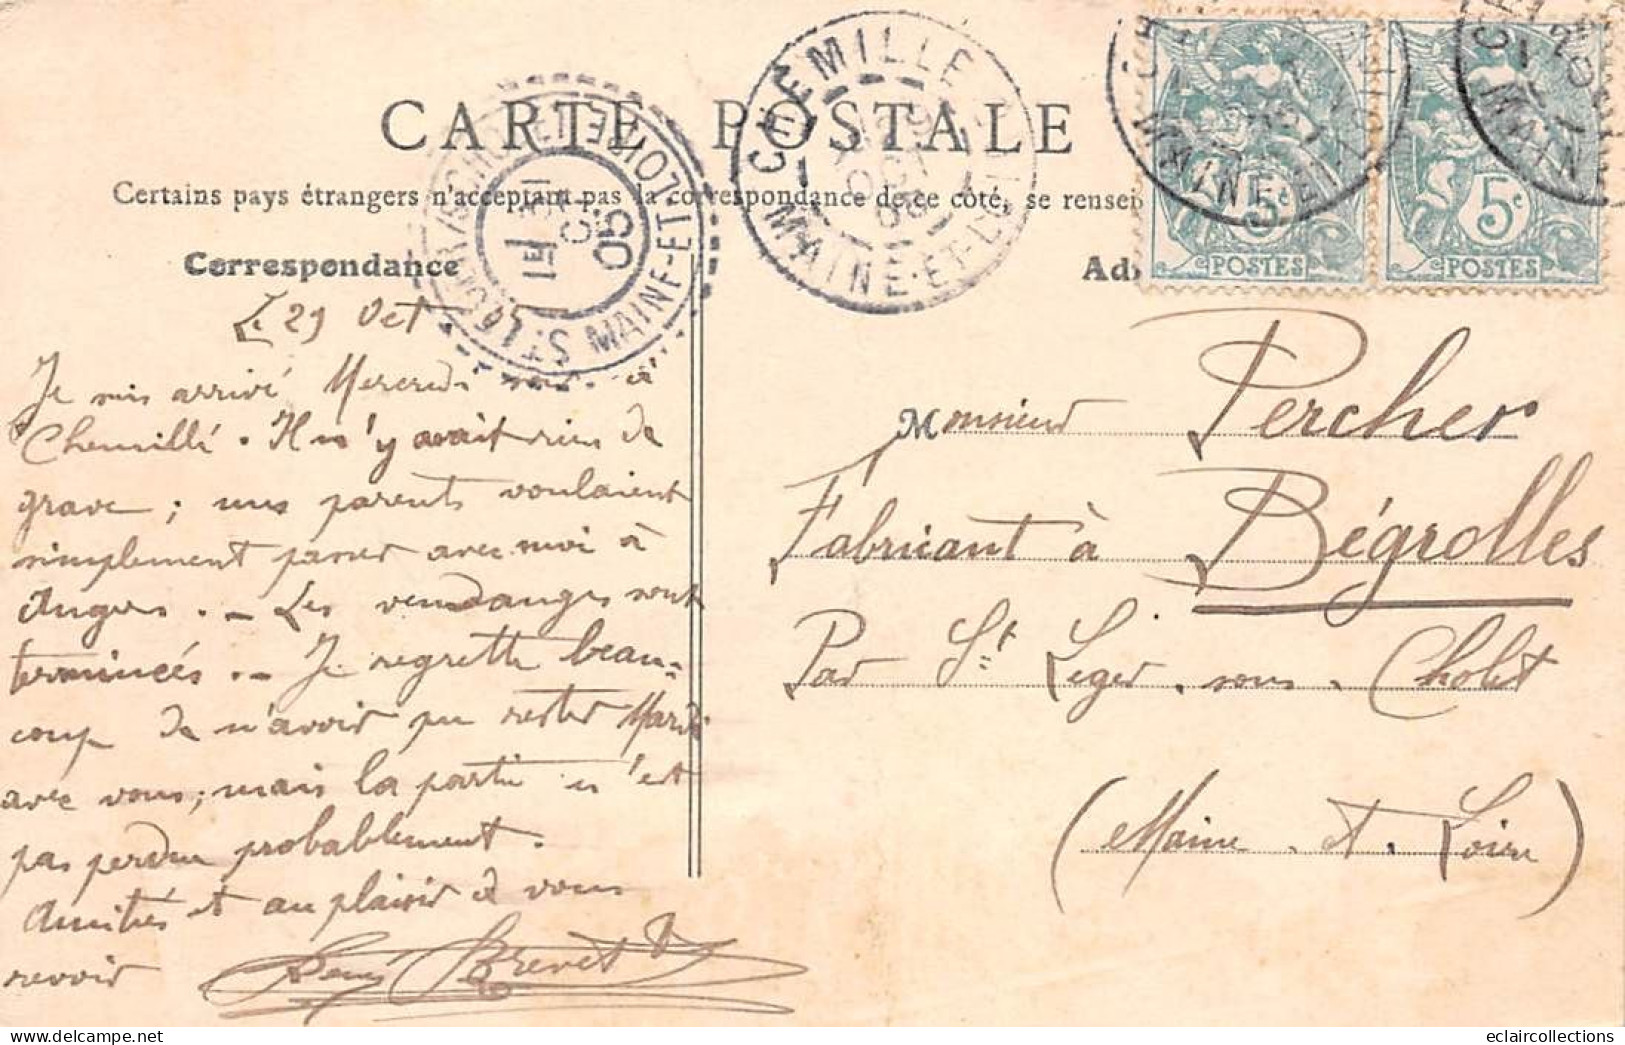 CARTE POSTALE
Certains pays étrangers n'acceptant pas la correspondance de ce côté, se rensei
Correspondance
Ad
CHEMILLE
MAINE-ET-LOIRE
ST LEGER S/S CHOLET
MAINE-ET-LOIRE
05
5c
POSTES
5c
POSTES
Le 29 Oct
Je suis arrivé Mercredi à
Chemillé. Il n'y avait rien de
grave ; mes parents voulaient
simplement passer avec moi à
Angers. - Les vendanges sont
terminées. - Je regrette beau-
coup de n'avoir pu rester Mardi
avec vous; mais la partie n'est
pas perdue probablement.
Amitiés et au plaisir de vous
revoir
Brevet
Monsieur Percher
Fabricant à Bégrolles
Par St Leger. sous. Cholet
(Maine. et. Loire)
eclaircollections